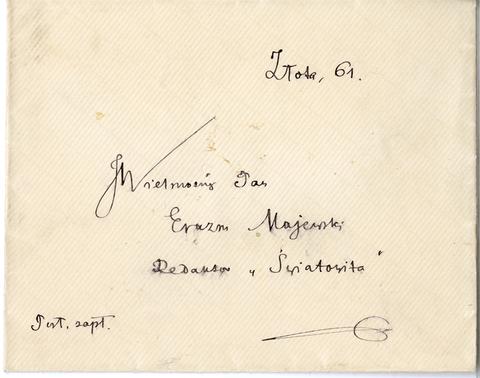 Złota, 61.
JWielmożny Pan
Erazm Majewski
Redaktor „Światowita"